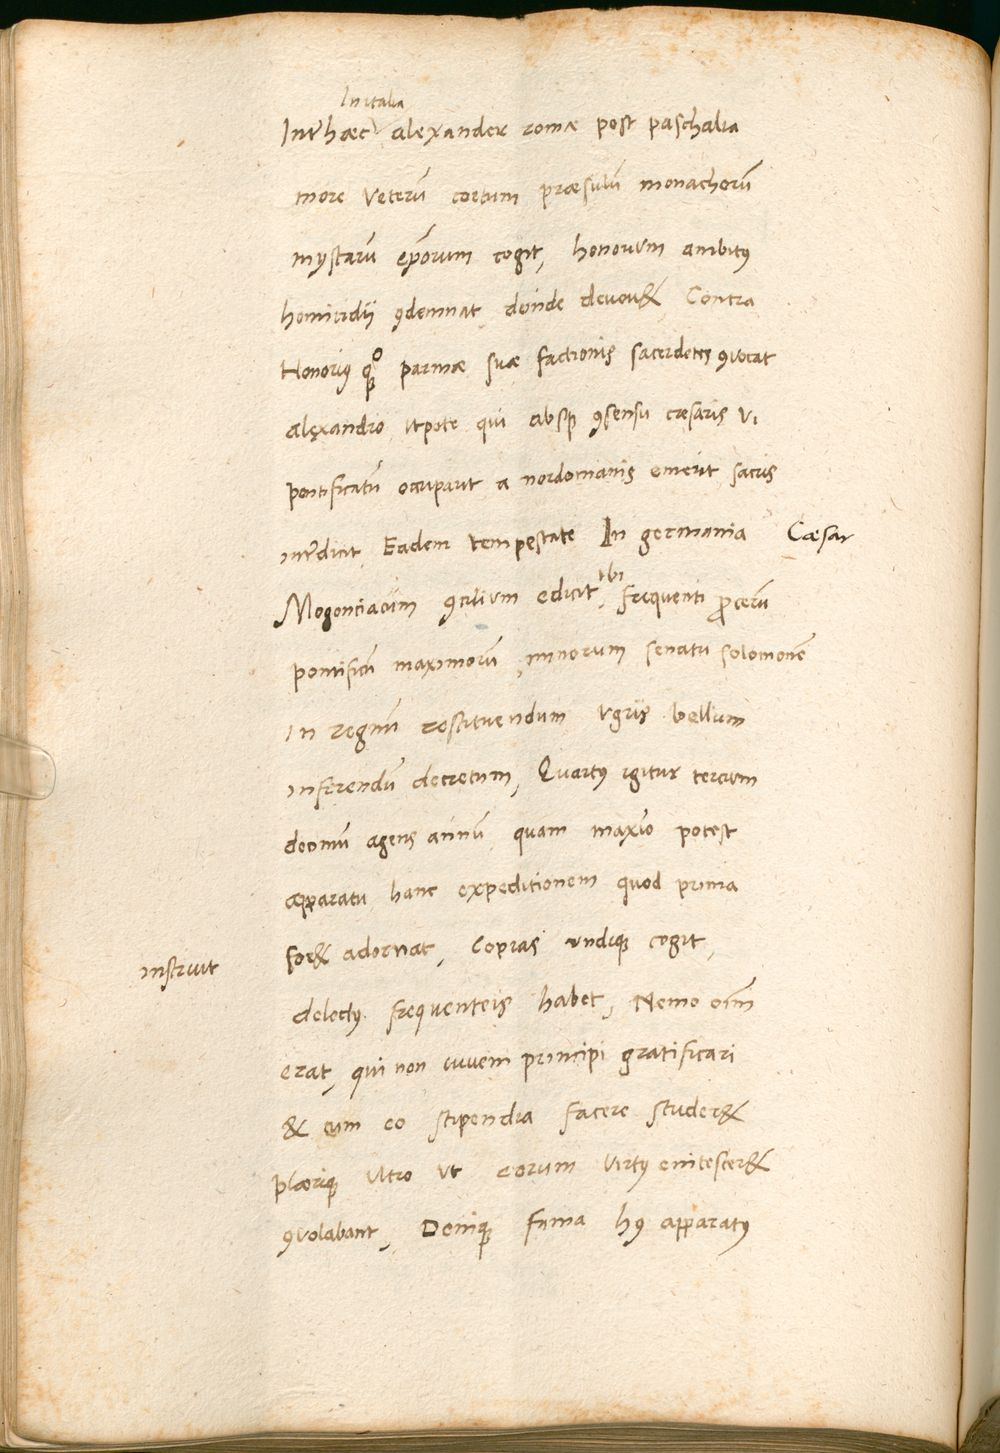 In italia
Interhæc alexander romæ post paschalia
more veterū coetum præsulū monachorū
mystarū ep̄orum cogit, honorum ambitꝰ
homicidii ꝯdemnat deinde devou& Contra
Honoriꝰ qꝫ parmæ suæ factionis sacerdotes ꝯvocat
alexandro utpote qui absqꝫ ꝯsensu cæsaris vi
pontificatū occuparit a nordomanis emerit sacris
interdicit Eadem tempestate In germania Cæsar
Mogontiacum ꝯcilium edicit, ibi frequenti procerū
pontificū maximorū, minorum senatu solomonē
In regnū restituendum ugris bellum
inferendū decretum, Quartꝰ igitur tercium
decimū agens annū quam maxīo potest
apparatu hanc expeditionem quod prima
for& adornat, Copias undiqꝫ cogit,
instruit
delectꝰ frequenteis habet, Nemo eīm
erat, qui non iuuem principi gratificari
& cum eo stipendia facere studer&
plæriqꝫ ultro ut eorum virtꝰ enitescer&
ꝯvolabant, Deniqꝫ fama hꝰ apparatꝰ